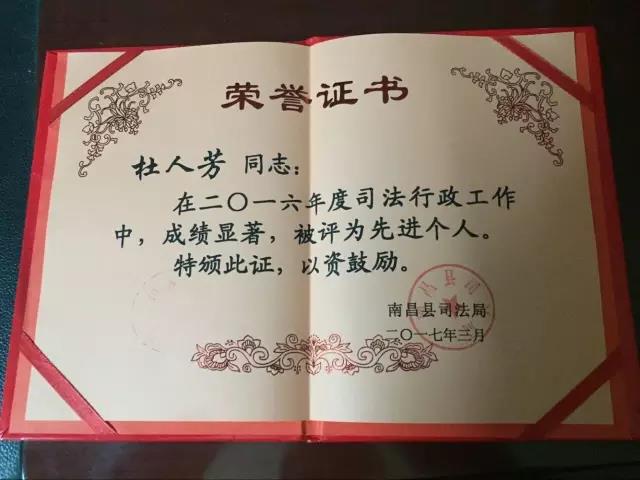 荣誉证书
杜人芳 同志：
在二〇一六年度司法行政工作
中，成绩显著，被评为先进个人。
特颁此证，以资鼓励。
南昌县司法局
二〇一七年三月